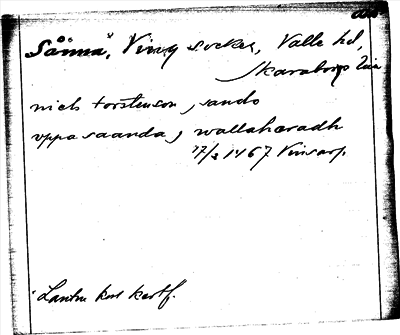 Sånna, Ving socken, Valle hd,
Skaraborgs län
niels torstenson, sando
vppa saanda, wallahæradh
17/2 1467 Vinsarp.
kart kartf.